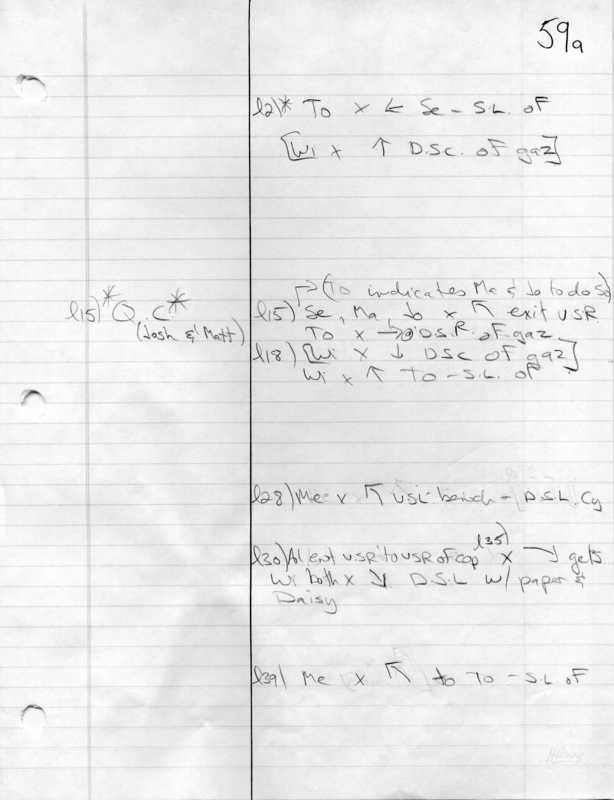 59a
l2)* To x ← Se - S.L. of
[Wi x ↑ D.S.C. of gaz]
→(To indicates Ma & Jo to do so)
l15)* Q. C*
(Josh & Matt)
l15) Se, Ma, Jo x ↖ exit U.S.R
To x → D.S.R. of gaz
l18) [Wi x ↓ DSC of gaz]
Wi x ↑ To - S.L. of
l28) Me x ↖ USL bench - D.S.L. Cy
l35)
l30) Al ent USR to USR of cop x ↘ gets
Wi both x ↘ D.S.L w/ paper &
Daisy
l39) Me x ↖ to To - S.L. of
Hilroy